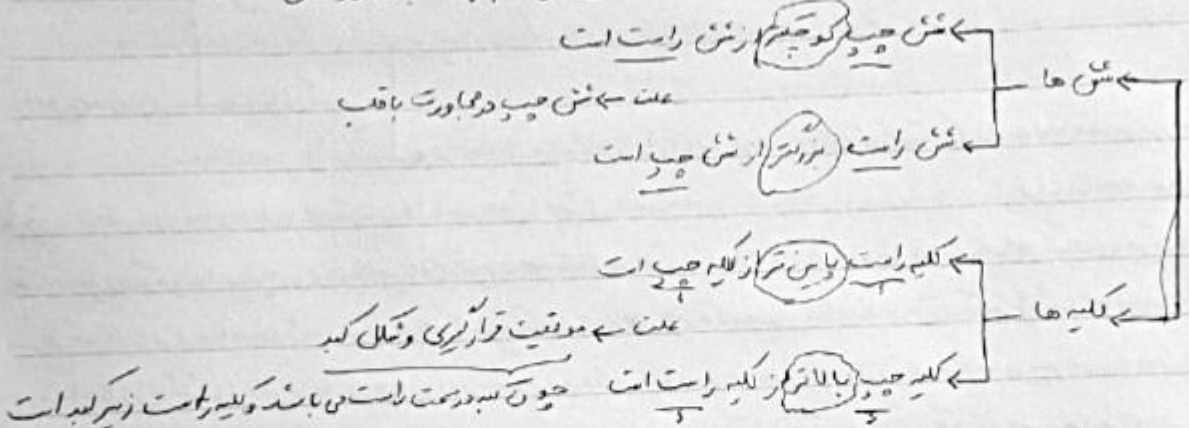 شش چپ کوچکتر از شش راست است
شش ها
علت ← شش چپ در مجاورت با قلب
شش راست بزرگتر از شش چپ است
کلیه راست پایین تر از کلیه چپ است
کلیه ها
علت ← موقعیت قرارگیری و شکل کبد
کلیه چپ بالاتر از کلیه راست است
چون کبد در سمت راست می باشد و کلیه راست زیر کبد است